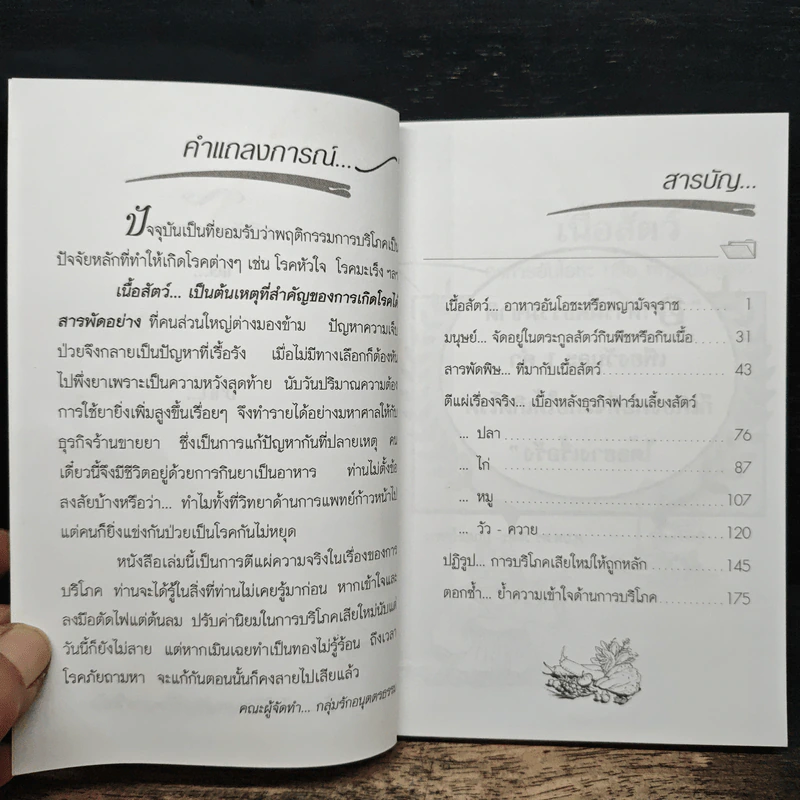 คำแถลงการณ์...
ปัจจุบันเป็นที่ยอมรับว่าพฤติกรรมการบริโภคเป็น
ปัจจัยหลักที่ทำให้เกิดโรคต่างๆ เช่น โรคหัวใจ โรคมะเร็ง ฯลฯ
เนื้อสัตว์... เป็นต้นเหตุที่สำคัญของการเกิดโรคได้
สารพัดอย่าง ที่คนส่วนใหญ่ต่างมองข้าม ปัญหาความเจ็บ
ป่วยจึงกลายเป็นปัญหาที่เรื้อรัง เมื่อไม่มีทางเลือกก็ต้องหัน
ไปพึ่งยาเพราะเป็นความหวังสุดท้าย นับวันปริมาณความต้อง
การใช้ยายิ่งเพิ่มสูงขึ้นเรื่อยๆ จึงทำรายได้อย่างมหาศาลให้กับ
ธุรกิจร้านขายยา ซึ่งเป็นการแก้ปัญหากันที่ปลายเหตุ คน
เดี๋ยวนี้จึงมีชีวิตอยู่ด้วยการกินยาเป็นอาหาร ท่านไม่ตั้งข้อ
สงสัยบ้างหรือว่า... ทำไมทั้งที่วิทยาด้านการแพทย์ก้าวหน้าไป
แต่คนก็ยิ่งแข่งกันป่วยเป็นโรคกันไม่หยุด
หนังสือเล่มนี้เป็นการตีแผ่ความจริงในเรื่องของการ
บริโภค ท่านจะได้รู้ในสิ่งที่ท่านไม่เคยรู้มาก่อน หากเข้าใจและ
ลงมือตัดไฟแต่ต้นลม ปรับค่านิยมในการบริโภคเสียใหม่นับแต่
วันนี้ก็ยังไม่สาย แต่หากเมินเฉยทำเป็นทองไม่รู้ร้อน ถึงเวลา
โรคภัยถามหา จะแก้กันตอนนั้นก็คงสายไปเสียแล้ว
คณะผู้จัดทำ... กลุ่มรักอนุตตรธรรม
สารบัญ...
เนื้อสัตว์... อาหารอันโอชะหรือพญามัจจุราช 1
มนุษย์... จัดอยู่ในตระกูลสัตว์กินพืชหรือกินเนื้อ 31
สารพัดพิษ... ที่มากับเนื้อสัตว์ 43
ตีแผ่เรื่องจริง... เบื้องหลังธุรกิจฟาร์มเลี้ยงสัตว์
... ปลา 76
... ไก่ 87
... หมู 107
... วัว - ควาย 120
ปฏิรูป... การบริโภคเสียใหม่ให้ถูกหลัก 145
ตอกซ้ำ... ย้ำความเข้าใจด้านการบริโภค 175